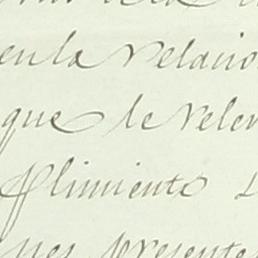 en la relacio
que le rele
plimiento
nes presente